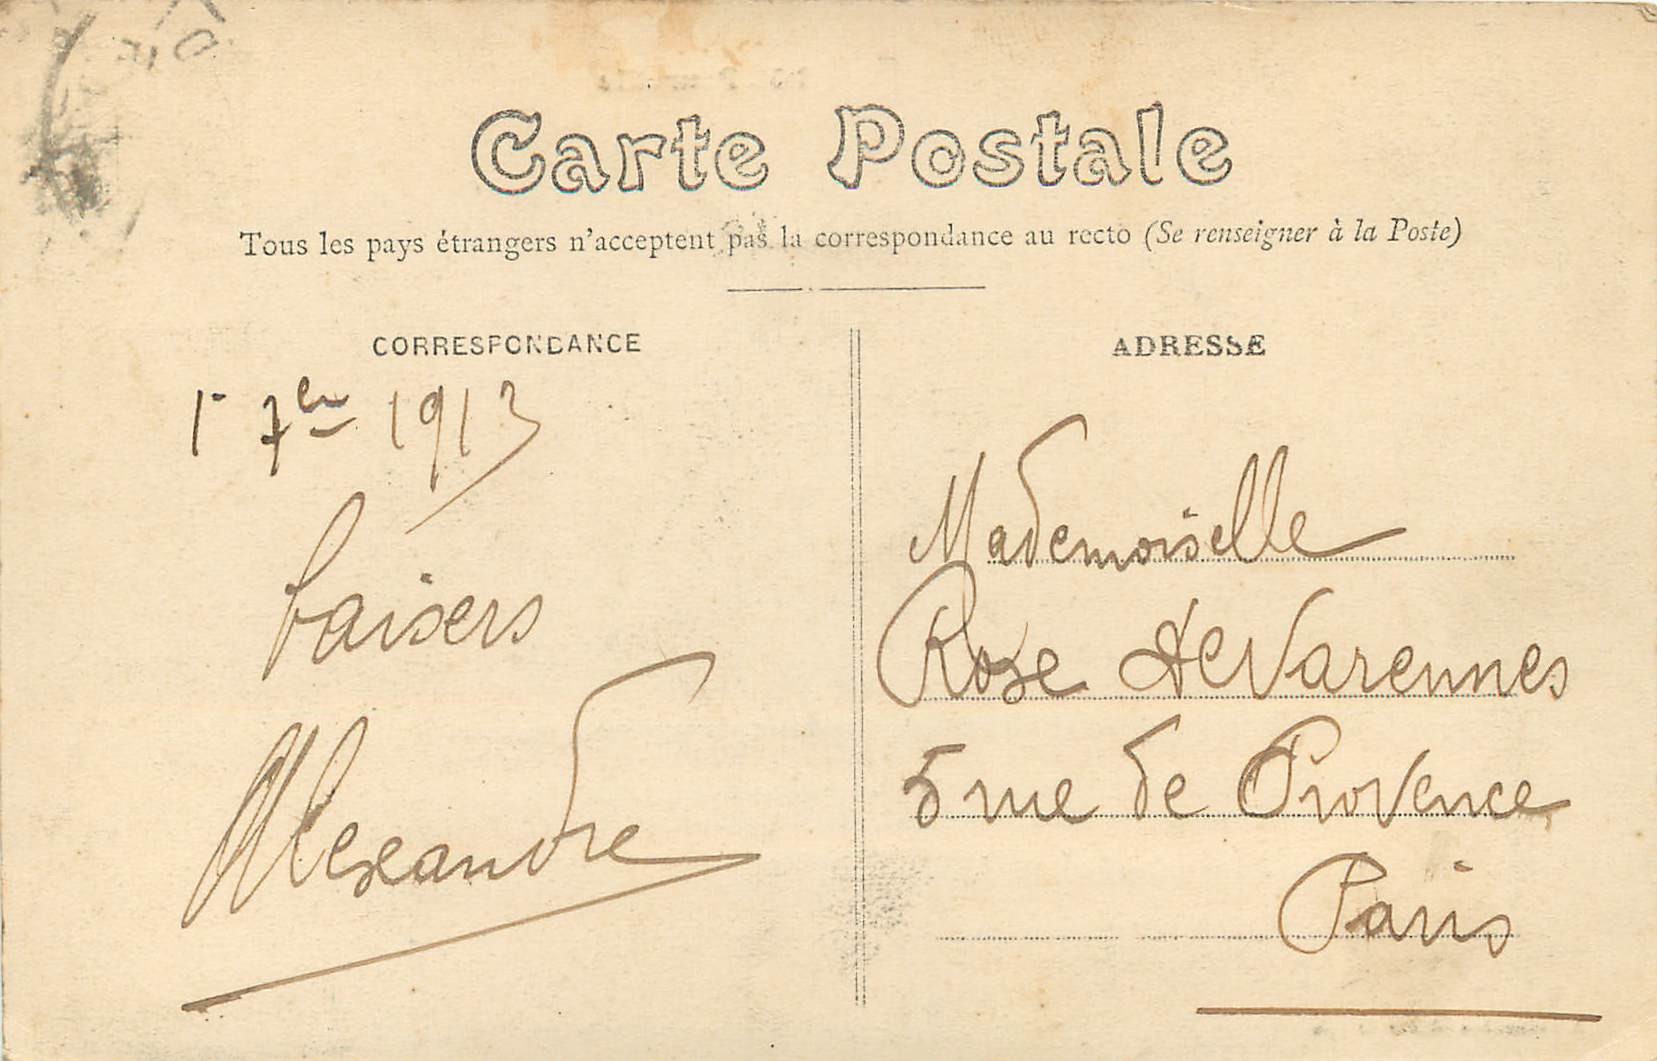 Carte Postale
Tous les pays étrangers n'acceptent pas la correspondance au recto (Se renseigner à la Poste)
CORRESPONDANCE
1r 7bre 1913
baisers
Alexandre
ADRESSE
Mademoiselle
Rose de Varennes
5 rue de Provence
Paris